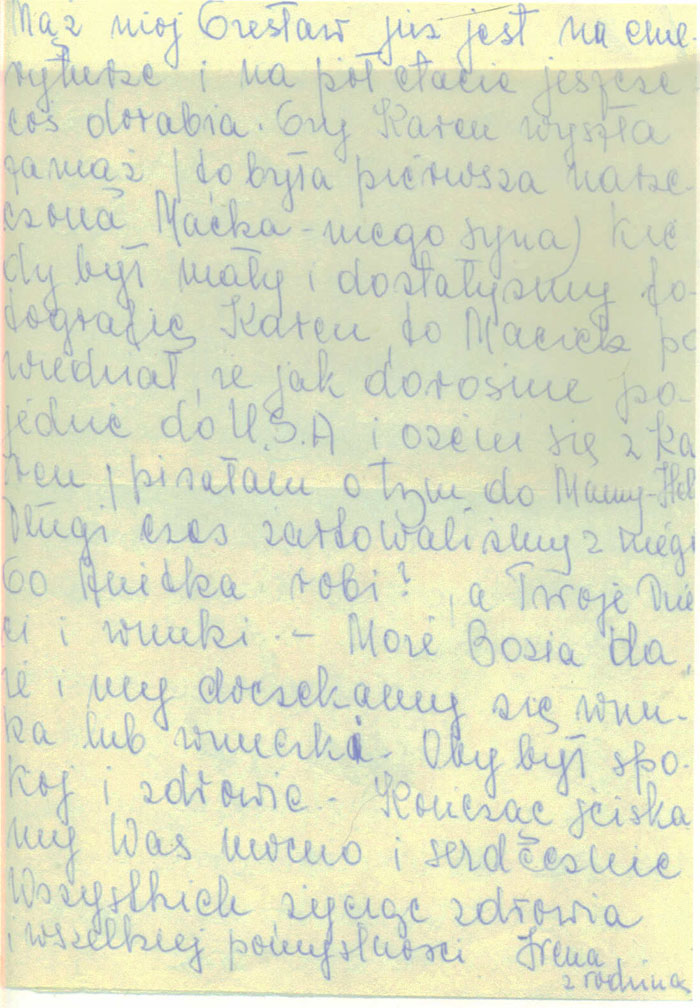 Mąż mój Czesław już jest na eme-
ryturze i na pół etacie jeszcze
coś dorabia. Czy Karen wyszła
zamąż / to była pierwsza narze
czona Maćka - mego syna) kie
dy był mały i dostałyśmy fo-
tografię Karen, to Maciek po
wiedział, że jak dorośnie po-
jedzie do U.S.A i ożeni się z Ka
ren / pisałam o tym do Mamy - Hel
Długi czas żartowaliśmy z niego
Co Anitka robi?, a Twoje Dzie
ci i wnuki. - Może Bozia da,
że i my doczekamy się wnu-
ka lub wnuczki. Oby był spo-
kój i zdrowie. - Kończąc ściska
my Was mocno i serdecznie
Wszystkich życząc zdrowia
i wszelkiej pomyślności Irena
z rodziną